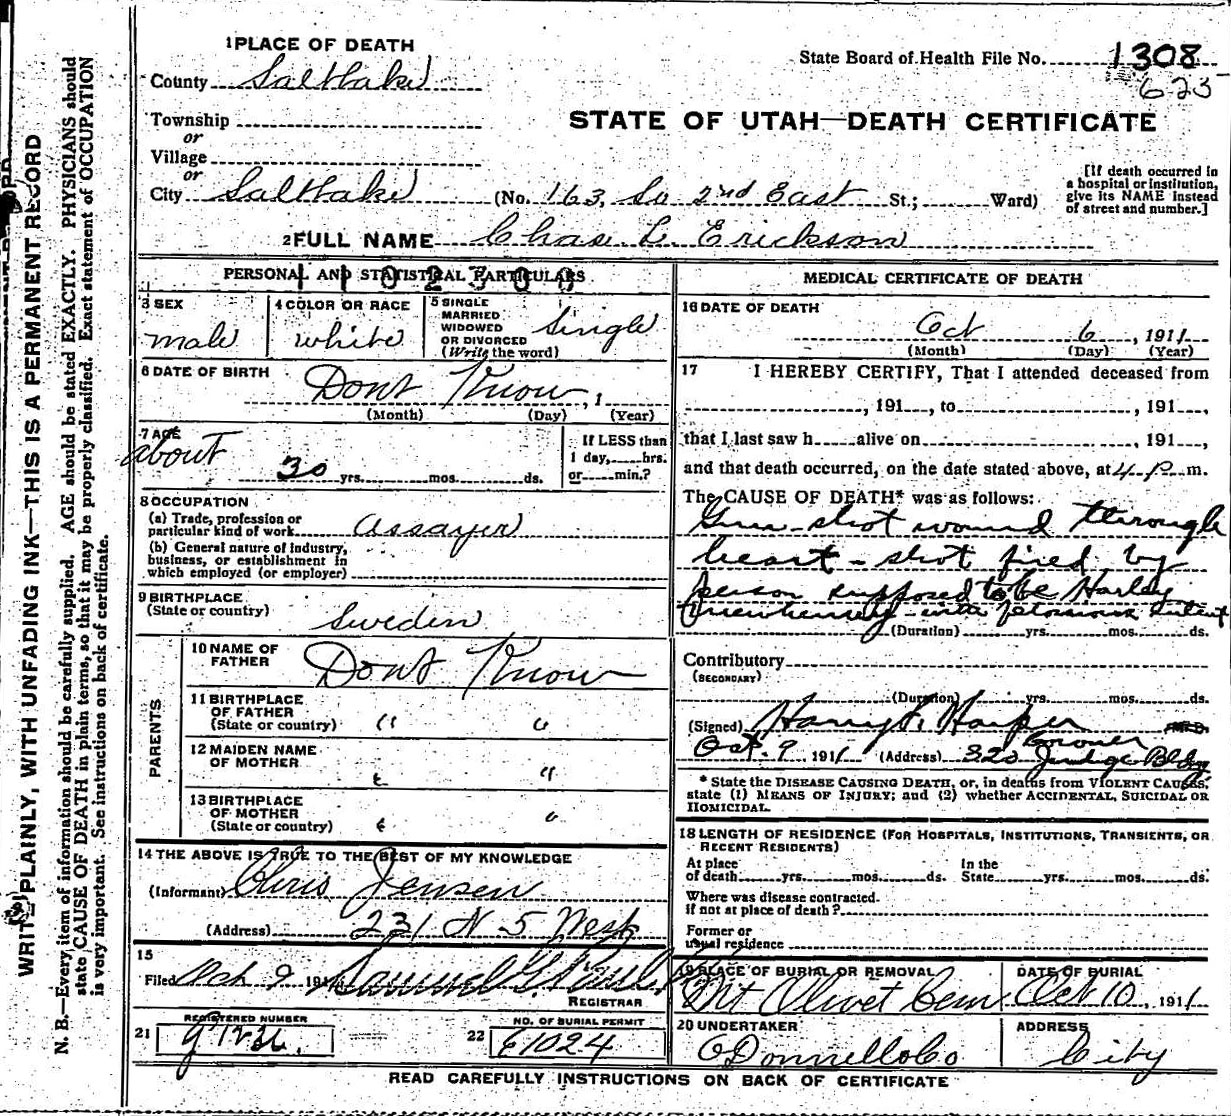 1 PLACE OF DEATH
State Board of Health File No. 1308
623
County Salt Lake
STATE OF UTAH—DEATH CERTIFICATE
Township
or
Village
or
City Salt Lake (No. 163 So 2nd East St.; Ward)
[If death occurred in
a hospital or institution,
give its NAME instead
of street and number.]
2 FULL NAME Chas. L. Erickson
PERSONAL AND STATISTICAL PARTICULARS
3 SEX
male
4 COLOR OR RACE
white
5 SINGLE
MARRIED
WIDOWED
OR DIVORCED
(Write the word)
Single
6 DATE OF BIRTH
Dont Know, 1
(Month) (Day) (Year)
7 AGE
about
30 yrs. mos. ds.
If LESS than
1 day, hrs.
or min.?
8 OCCUPATION
(a) Trade, profession or
particular kind of work Assayer
(b) General nature of industry,
business, or establishment in
which employed (or employer)
9 BIRTHPLACE
(State or country) Sweden
PARENTS
10 NAME OF
FATHER Dont Know
11 BIRTHPLACE
OF FATHER
(State or country) " "
12 MAIDEN NAME
OF MOTHER " "
13 BIRTHPLACE
OF MOTHER
(State or country) " "
14 THE ABOVE IS TRUE TO THE BEST OF MY KNOWLEDGE
(Informant) Chris Jensen
(Address) 231 N 5 West
15
Filed Oct 9 191 Samuel G. Paul
REGISTRAR
21 REGISTERED NUMBER
22 NO. OF BURIAL PERMIT
61024
MEDICAL CERTIFICATE OF DEATH
16 DATE OF DEATH
Oct 6, 1911
(Month) (Day) (Year)
17 I HEREBY CERTIFY, That I attended deceased from
, 191 , to , 191 ,
that I last saw h alive on , 191 ,
and that death occurred, on the date stated above, at 4 P. m.
The CAUSE OF DEATH* was as follows:
Gun-shot wound through
heart - shot fired by
person supposed to be Harley
felonious intent
(Duration) yrs. mos. ds.
Contributory
(SECONDARY)
(Duration) yrs. mos. ds.
(Signed) Harry F. Harper
Coroner
Oct. 9 1911 (Address) 320 Judge Bldg.
* State the DISEASE CAUSING DEATH, or, in deaths from VIOLENT CAUSES,
state (1) MEANS OF INJURY; and (2) whether ACCIDENTAL, SUICIDAL OR
HOMICIDAL.
18 LENGTH OF RESIDENCE (FOR HOSPITALS, INSTITUTIONS, TRANSIENTS, OR
RECENT RESIDENTS)
At place In the
of death yrs. mos. ds. State yrs. mos. ds.
Where was disease contracted.
if not at place of death?
Former or
usual residence
19 PLACE OF BURIAL OR REMOVAL
Mt Olivet Cem
DATE OF BURIAL
Oct 10, 1911
20 UNDERTAKER
O'Donnell & Co
ADDRESS
City
READ CAREFULLY INSTRUCTIONS ON BACK OF CERTIFICATE
WRITE PLAINLY, WITH UNFADING INK—THIS IS A PERMANENT RECORD
N. B.—Every item of information should be carefully supplied. AGE should be stated EXACTLY. PHYSICIANS should
state CAUSE OF DEATH in plain terms, so that it may be properly classified. Exact statement of OCCUPATION
is very important. See instructions on back of certificate.